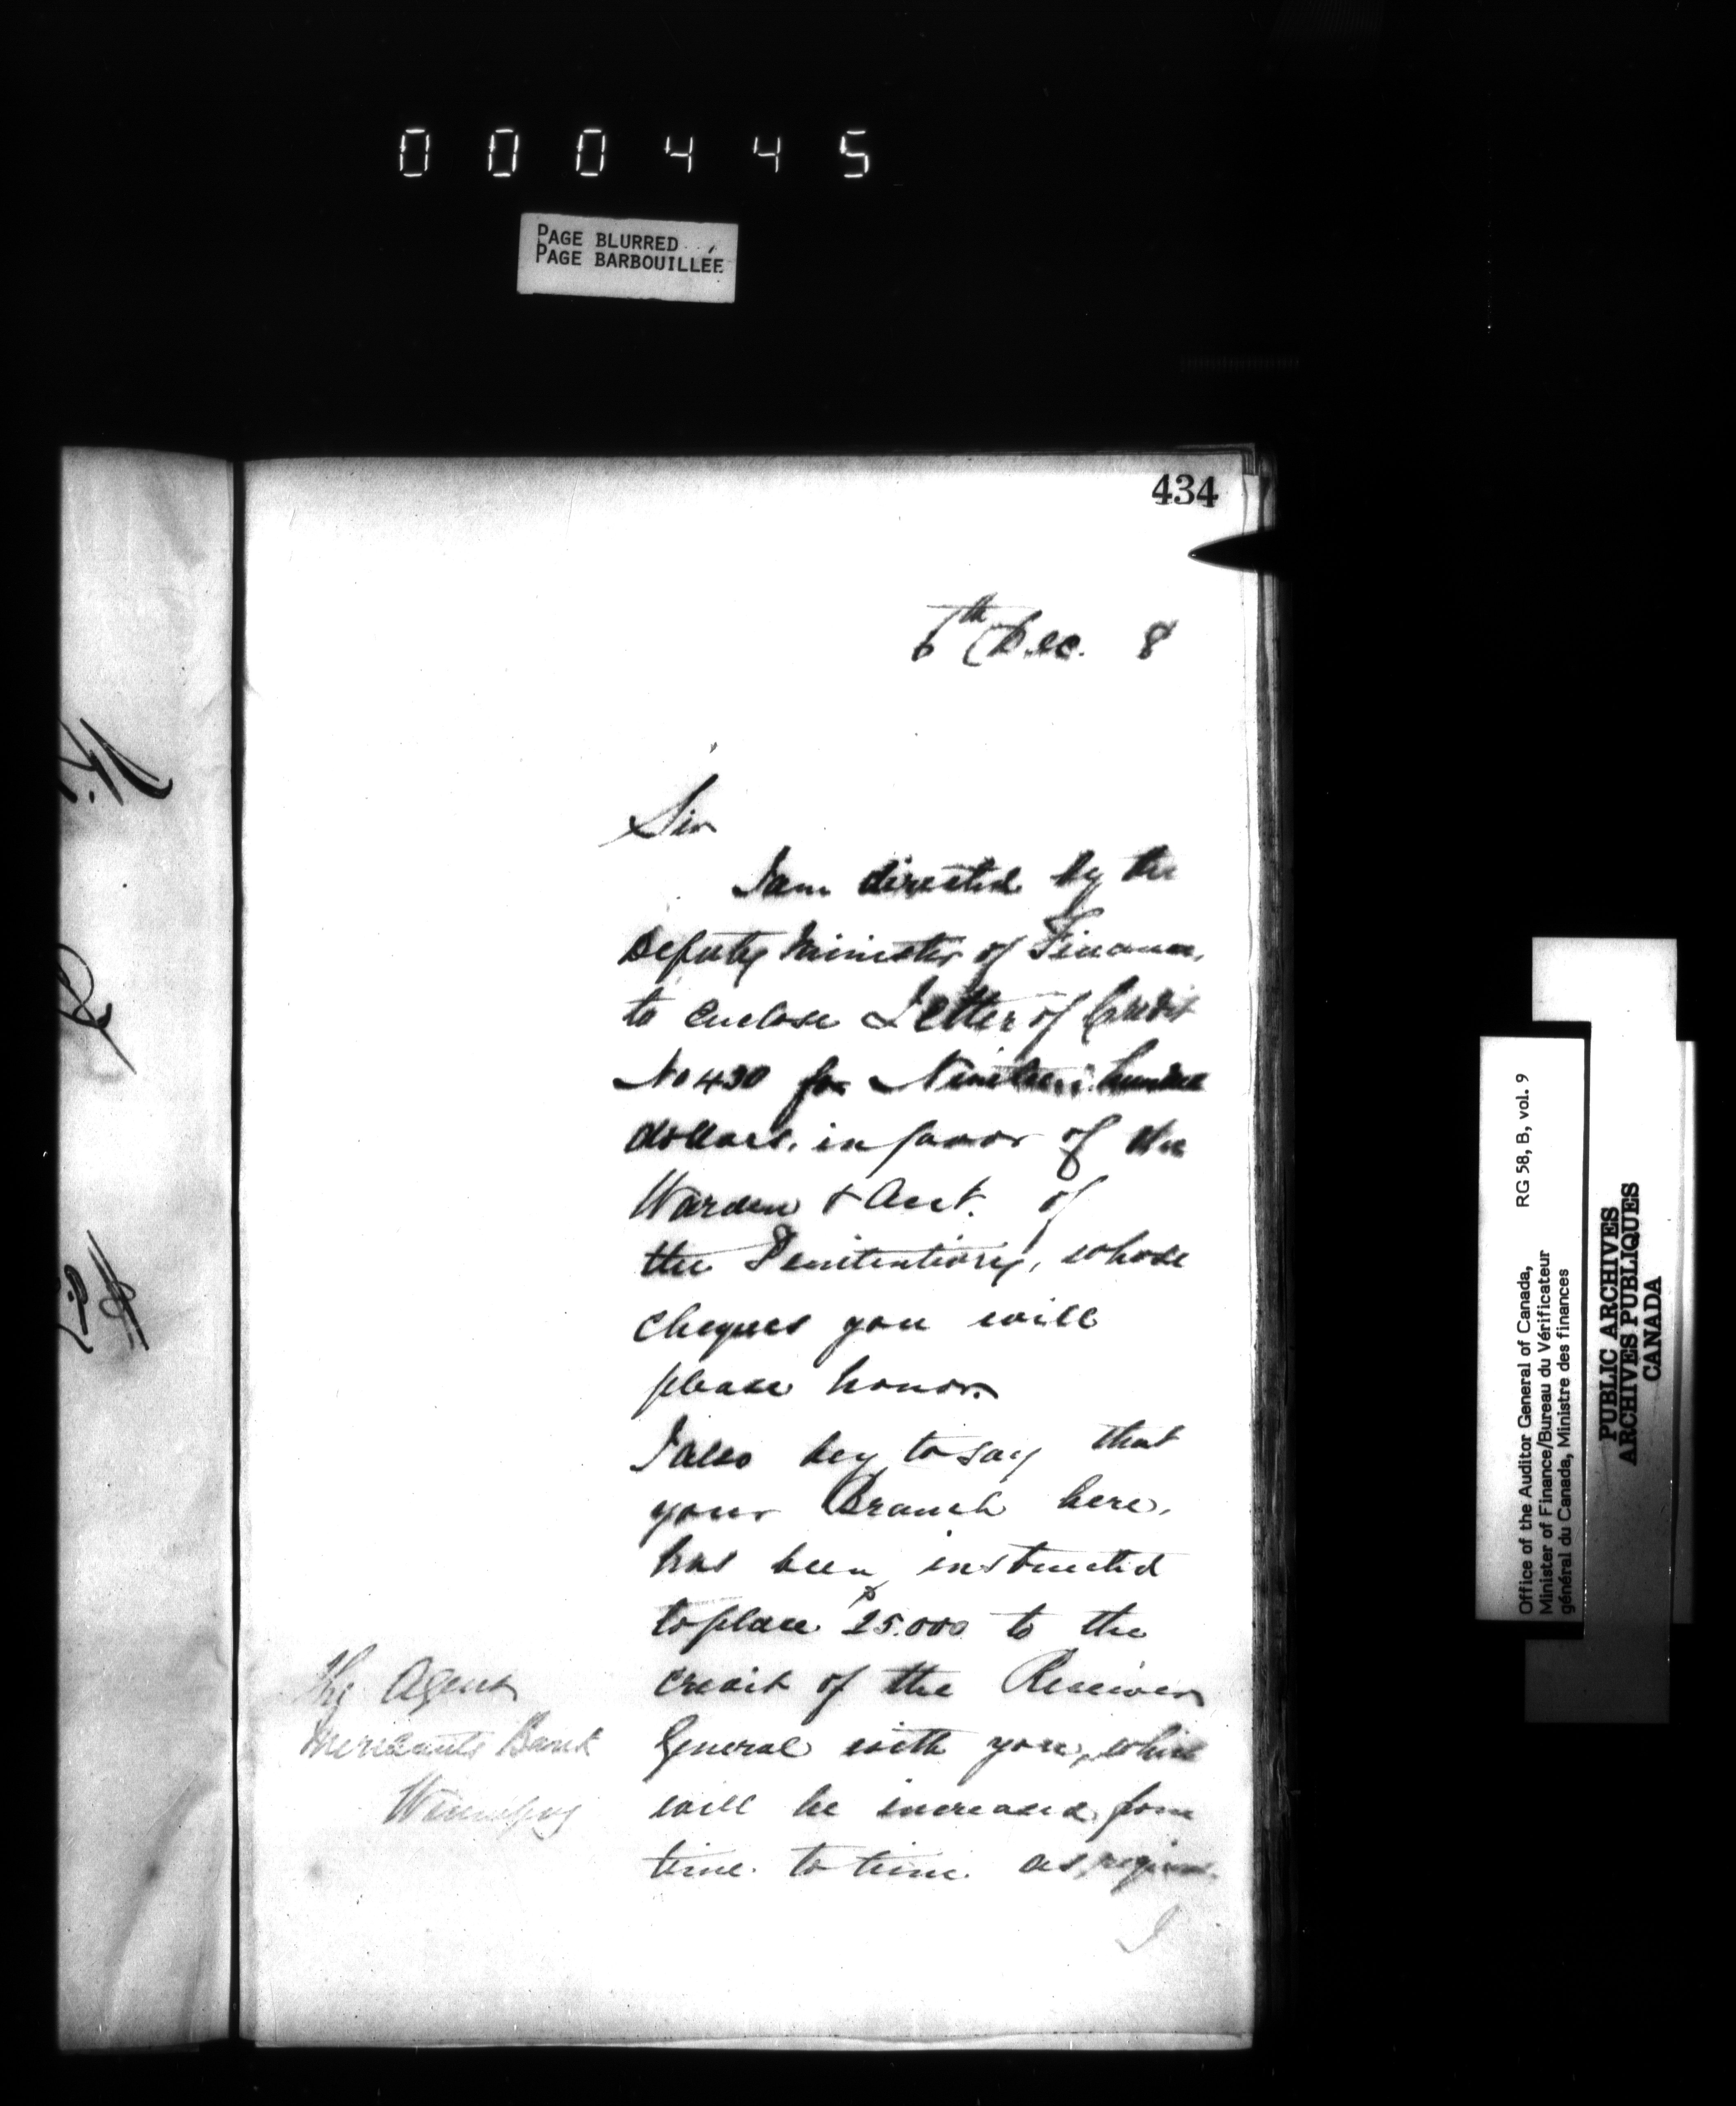 000445
PAGE BLURRED
PAGE BARBOUILLÉE
434
6th Dec. 8
Sir
I am directed by the
Deputy Minister of Finance,
to enclose Letter of Credit
No 430 for Nineteen hundred
dollars, in favor of the
Warden & Acct. of
the Penitentiary, whose
cheques you will
please honor.
I also beg to say that
your Branch here,
has been instructed
to place $25.000 to the
credit of the Receiver
General with you, which
will be increased from
time to time as
I
The Agent
Merchants Bank
Winnipeg
Office of the Auditor General of Canada, RG 58, B, vol. 9
Minister of Finance/Bureau du Vérificateur
général du Canada, Ministre des finances
PUBLIC ARCHIVES
ARCHIVES PUBLIQUES
CANADA